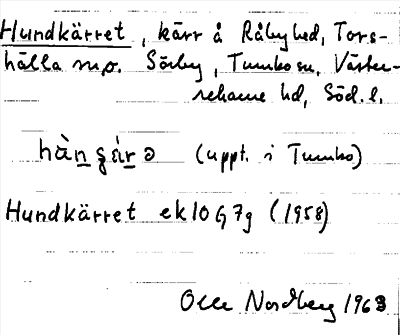 Hundkärret, kärr å Råby hed, Tors-
hälla sn o. Sörby, Tumbo sn, Väster-
rekarne hd, Söd. l.
(uppt. i Tumbo)
Hundkärret ek 10 G 7g (1958)
Olle Nordberg 1963